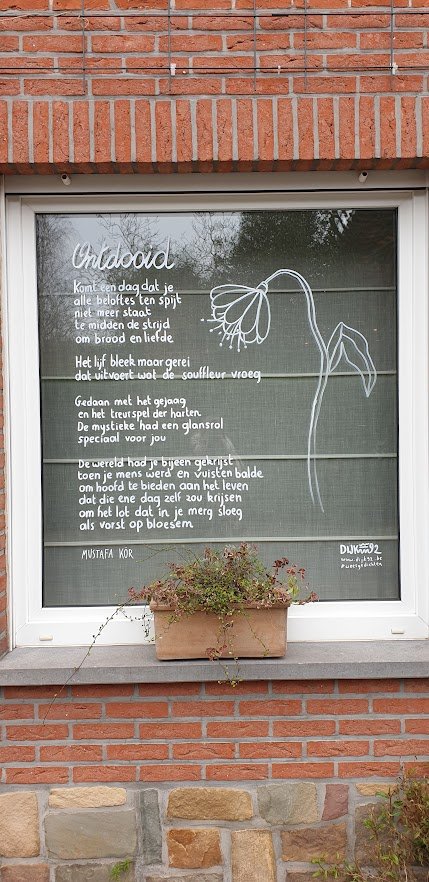 Ontdooid
Komt een dag dat je
alle beloftes ten spijt
niet meer staat
te midden de strijd
om brood en liefde
Het lijf bleek maar gerei
dat uitvoert wat de souffleur vroeg
Gedaan met het gejaag
en het treurspel der harten.
De mystieke had een glansrol
speciaal voor jou
De wereld had je bijeen gekrijst
toen je mens werd en vuisten balde
om hoofd te bieden aan het leven
dat die ene dag zelf zou krijsen
om het lot dat in je merg sloeg
als vorst op bloesem
MUSTAFA KOR
DIJK92
www.dijk92.be